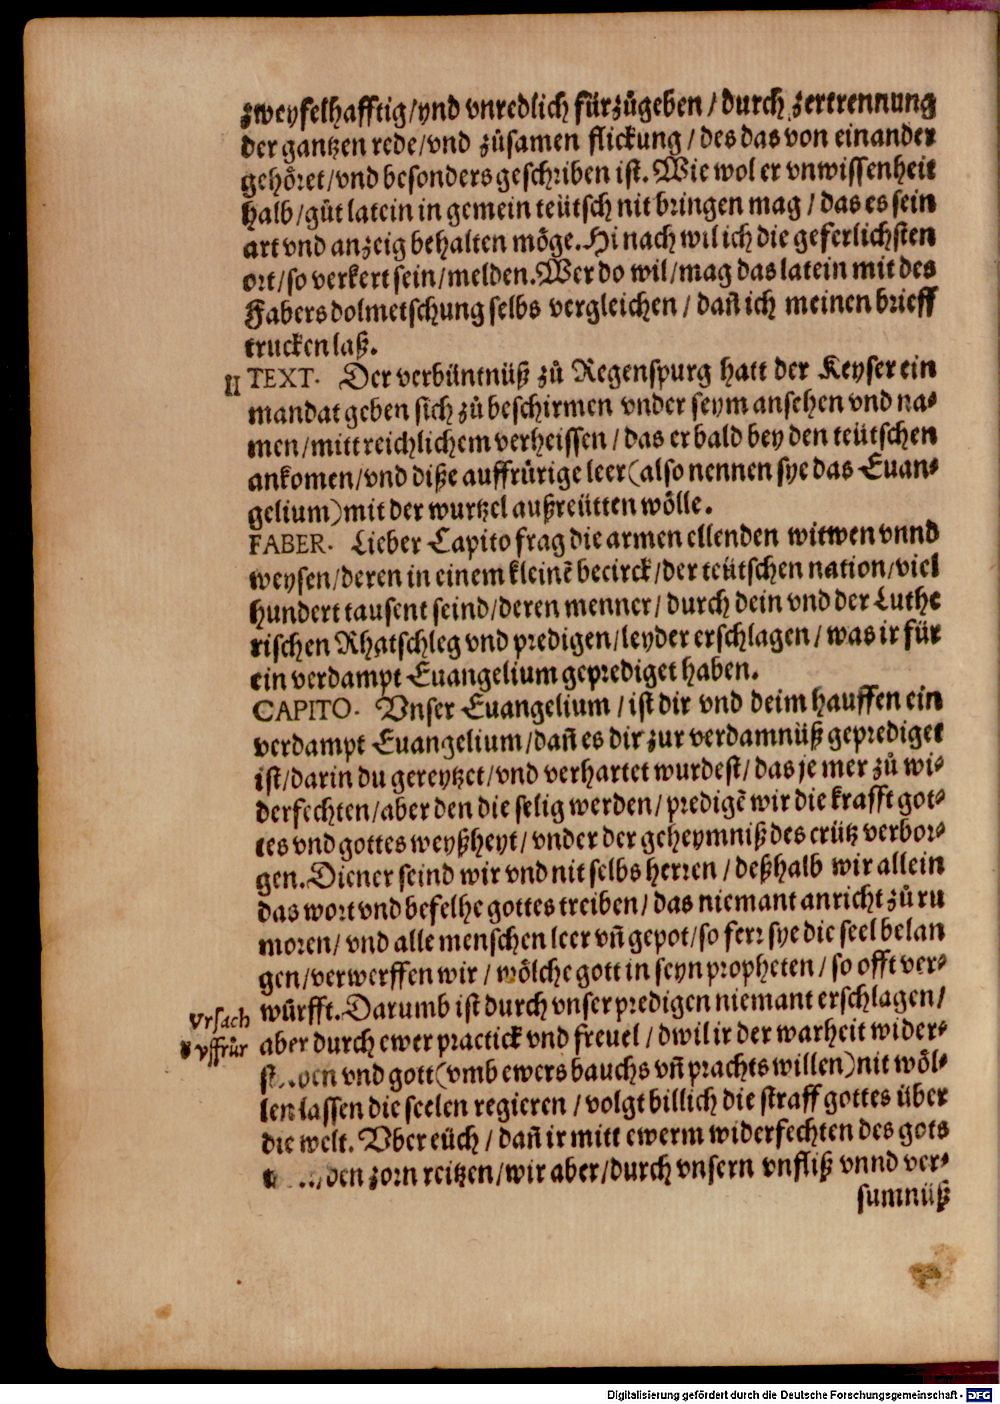 zweyfelhafftig/vnd vnredlich fürzůgeben/durch zertrennung
der gantzen rede/vnd zůsamen flickung/des das von einander
gehöret/vnd besonders geschriben ist. Wie wol er vnwissenheit
halb/gůt latein in gemein teütsch nit bringen mag/das es sein
art vnd anzeig behalten möge. Hi nach wil ich die geferlichsten
ort/so verkert sein/melden. Wer do wil/mag das latein mit des
Fabers dolmetschung selbs vergleichen/dañ ich meinen brieff
trucken laß.
II TEXT. Der verbüntnüß zů Regenspurg hatt der Keyser ein
mandat geben sich zů beschirmen vnder seym ansehen vnd na⸗
men/mitt reichlichem verheissen/das er bald bey den teütschen
ankomen/vnd diße auffrůrige leer(also nennen sye das Euan⸗
gelium)mit der wurtzel außreütten wölle.
FABER. Lieber Capito frag die armen ellenden witwen vnnd
weysen/deren in einem kleinẽ becirck/der teütschen nation/viel
hundert tausent seind/deren menner/durch dein vnd der Luthe
rischen Rhatschleg vnd predigen/leyder erschlagen/was ir für
ein verdampt Euangelium geprediget haben.
CAPITO. Vnser Euangelium/ist dir vnd deim hauffen ein
verdampt Euangelium/dañ es dir zur verdamnüß geprediget
ist/darin du gereytzet/vnd verhartet wurdest/das je mer zů wi⸗
derfechten/aber den die selig werden/predigẽ wir die krafft got⸗
tes vnd gottes weyßheyt/vnder der geheymniß des crütz verbor⸗
gen. Diener seind wir vnd nit selbs herren/deßhalb wir allein
das wort vnd befelhe gottes treiben/das niemant anricht zů ru
moren/vnd alle menschen leer vñ gepot/so ferr sye die seel belan
gen/verwerffen wir/wölche gott in seyn propheten/so offt ver⸗
würfft. Darumb ist durch vnser predigen niemant erschlagen/
Vrsach
vffrůr
aber durch ewer practick vnd freuel/dwil ir der warheit wider⸗
vnd gott(vmb ewers bauchs vñ prachts willen)nit wöl⸗
len lassen die seelen regieren/volgt billich die straff gottes über
die welt. Vber eüch/dañ ir mitt ewerm widerfechten des gots
den zorn reitzen/wir aber/durch vnsern vnfliß vnnd ver⸗
sumnüß
Digitalisierung gefördert durch die Deutsche Forschungsgemeinschaft - DFG